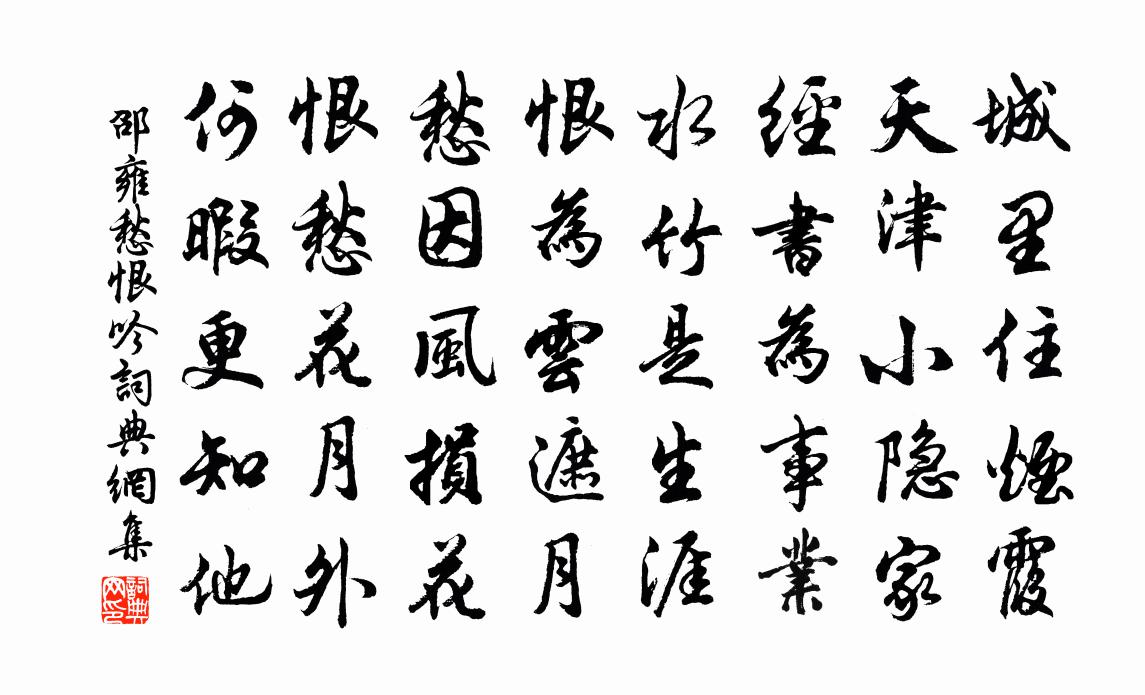 城里住煙霞
天津小隐家
經書為事業
水竹是生涯
恨為雲遮月
愁因風損花
恨愁花月外
何暇更知他
邵雍愁恨吟詞典網集
詞典網印